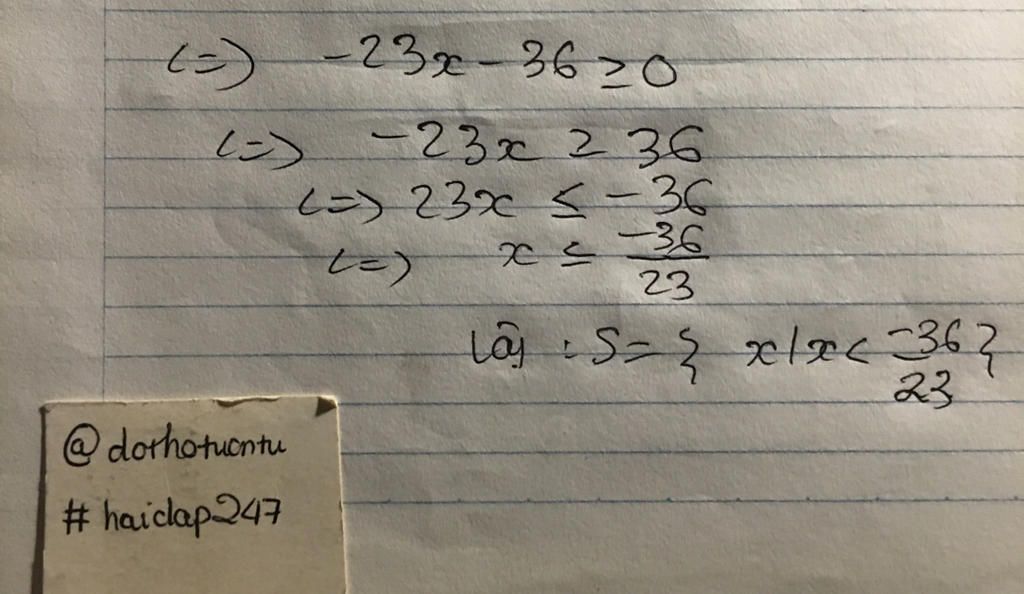 <=> -23x - 36 ≥ 0
<=> -23x ≥ 36
<=> 23x ≤ -36
<=> x ≤ -36/23
Vậy : S = { x | x < -36/23 }
@dothotuantu
#haidap247